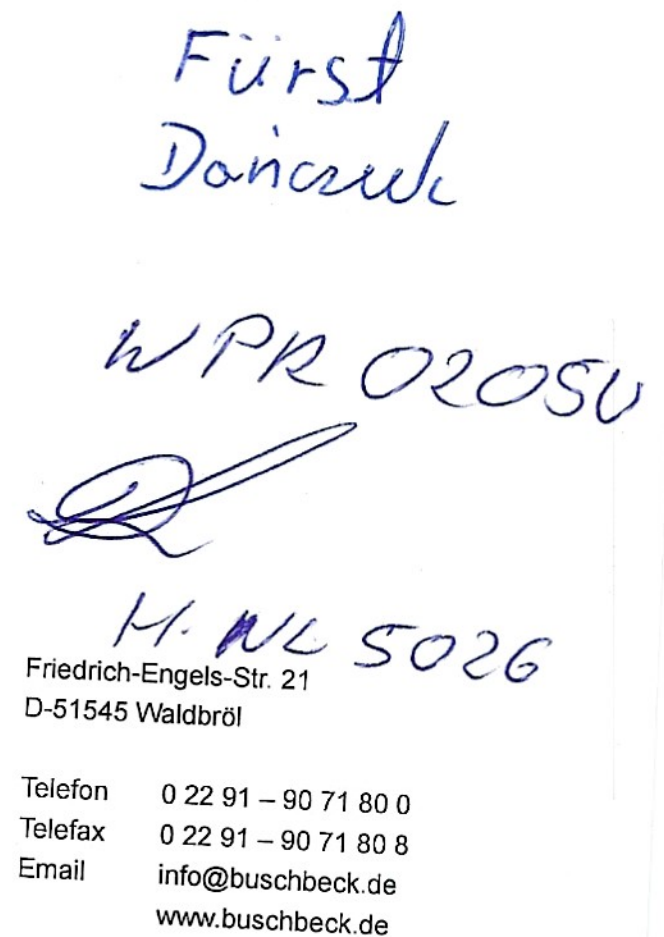 Fürst
Dańczuk
WPR 0205U
H. NL 5026
Friedrich-Engels-Str. 21
D-51545 Waldbröl
Telefon 0 22 91 – 90 71 80 0
Telefax 0 22 91 – 90 71 80 8
Email info@buschbeck.de
www.buschbeck.de